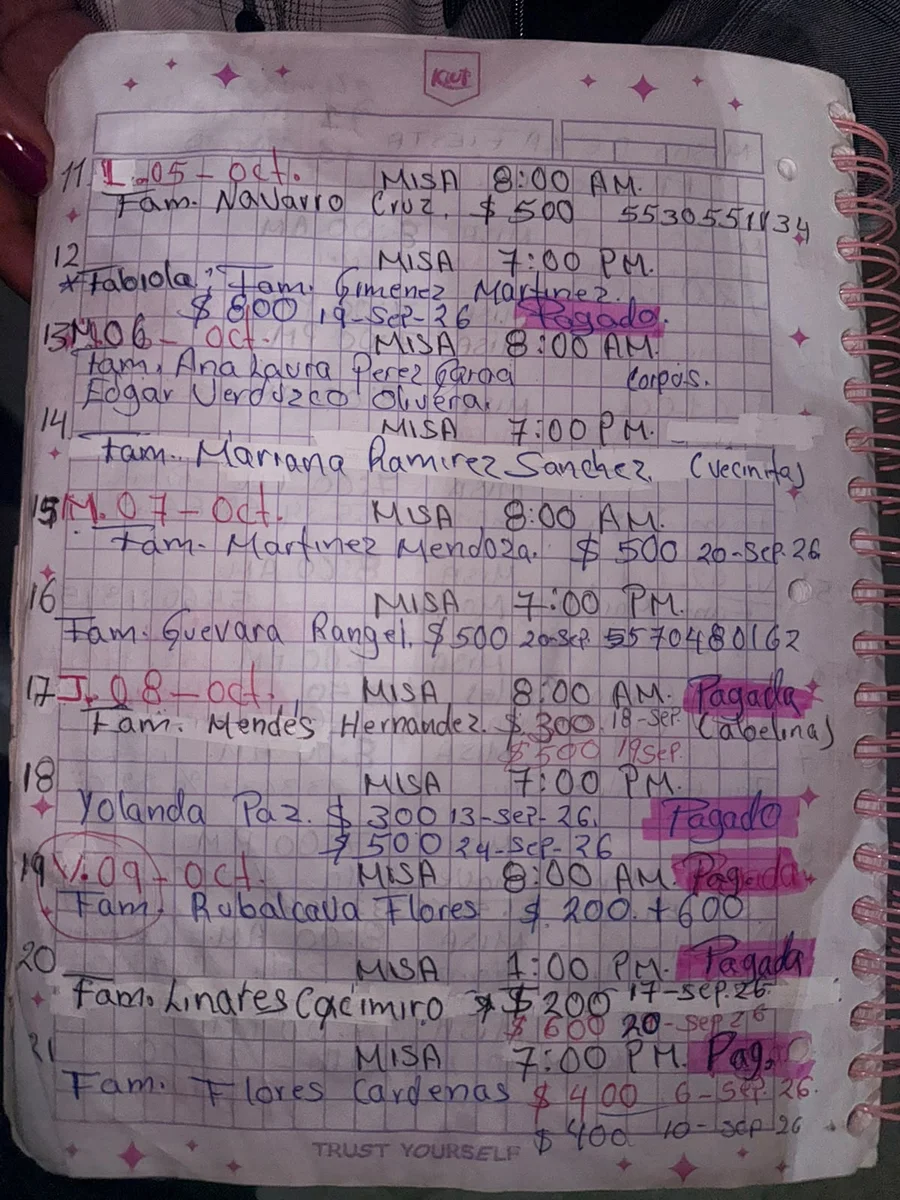 Kiut
11 L.05-Oct. MISA 8:00 AM.
Fam. Navarro Cruz. $500 5530551134
12 MISA 7:00 PM.
*Fabiola; Fam. Gimenez Martinez.
$800 19-Sep-26 Pagado.
13 M.06-Oct. MISA 8:00 AM.
Fam. Ana Laura Perez Garcia Corpos.
Edgar Verduzco Olivera.
14 MISA 7:00 PM.
Fam. Mariana Ramirez Sanchez. (vecinita)
15 M.07-Oct. MISA 8:00 AM.
Fam. Martinez Mendoza. $500 20-Sep.26
16 MISA 7:00 PM.
Fam. Guevara Rangel. $500 20-Sep. 5570480162
17 J.08-Oct. MISA 8:00 AM. Pagada
Fam. Mendes Hernandez. $300 18-Sep. (abelina)
$500 19Sep.
18 MISA 7:00 PM.
Yolanda Paz. $300 13-Sep-26. Pagado
$500 24-Sep-26
19 V.09-Oct. MISA 8:00 AM. Pagada.
Fam. Rubalcava Flores $200.+600
20 MISA 1:00 PM. Pagada
Fam. Linares Cacimiro $200 17-Sep.26.
$600 20-Sep 26
21 MISA 7:00 PM. Pag.
Fam. Flores Cardenas $400 6-Sep.26.
$400 10-Sep 26
TRUST YOURSELF